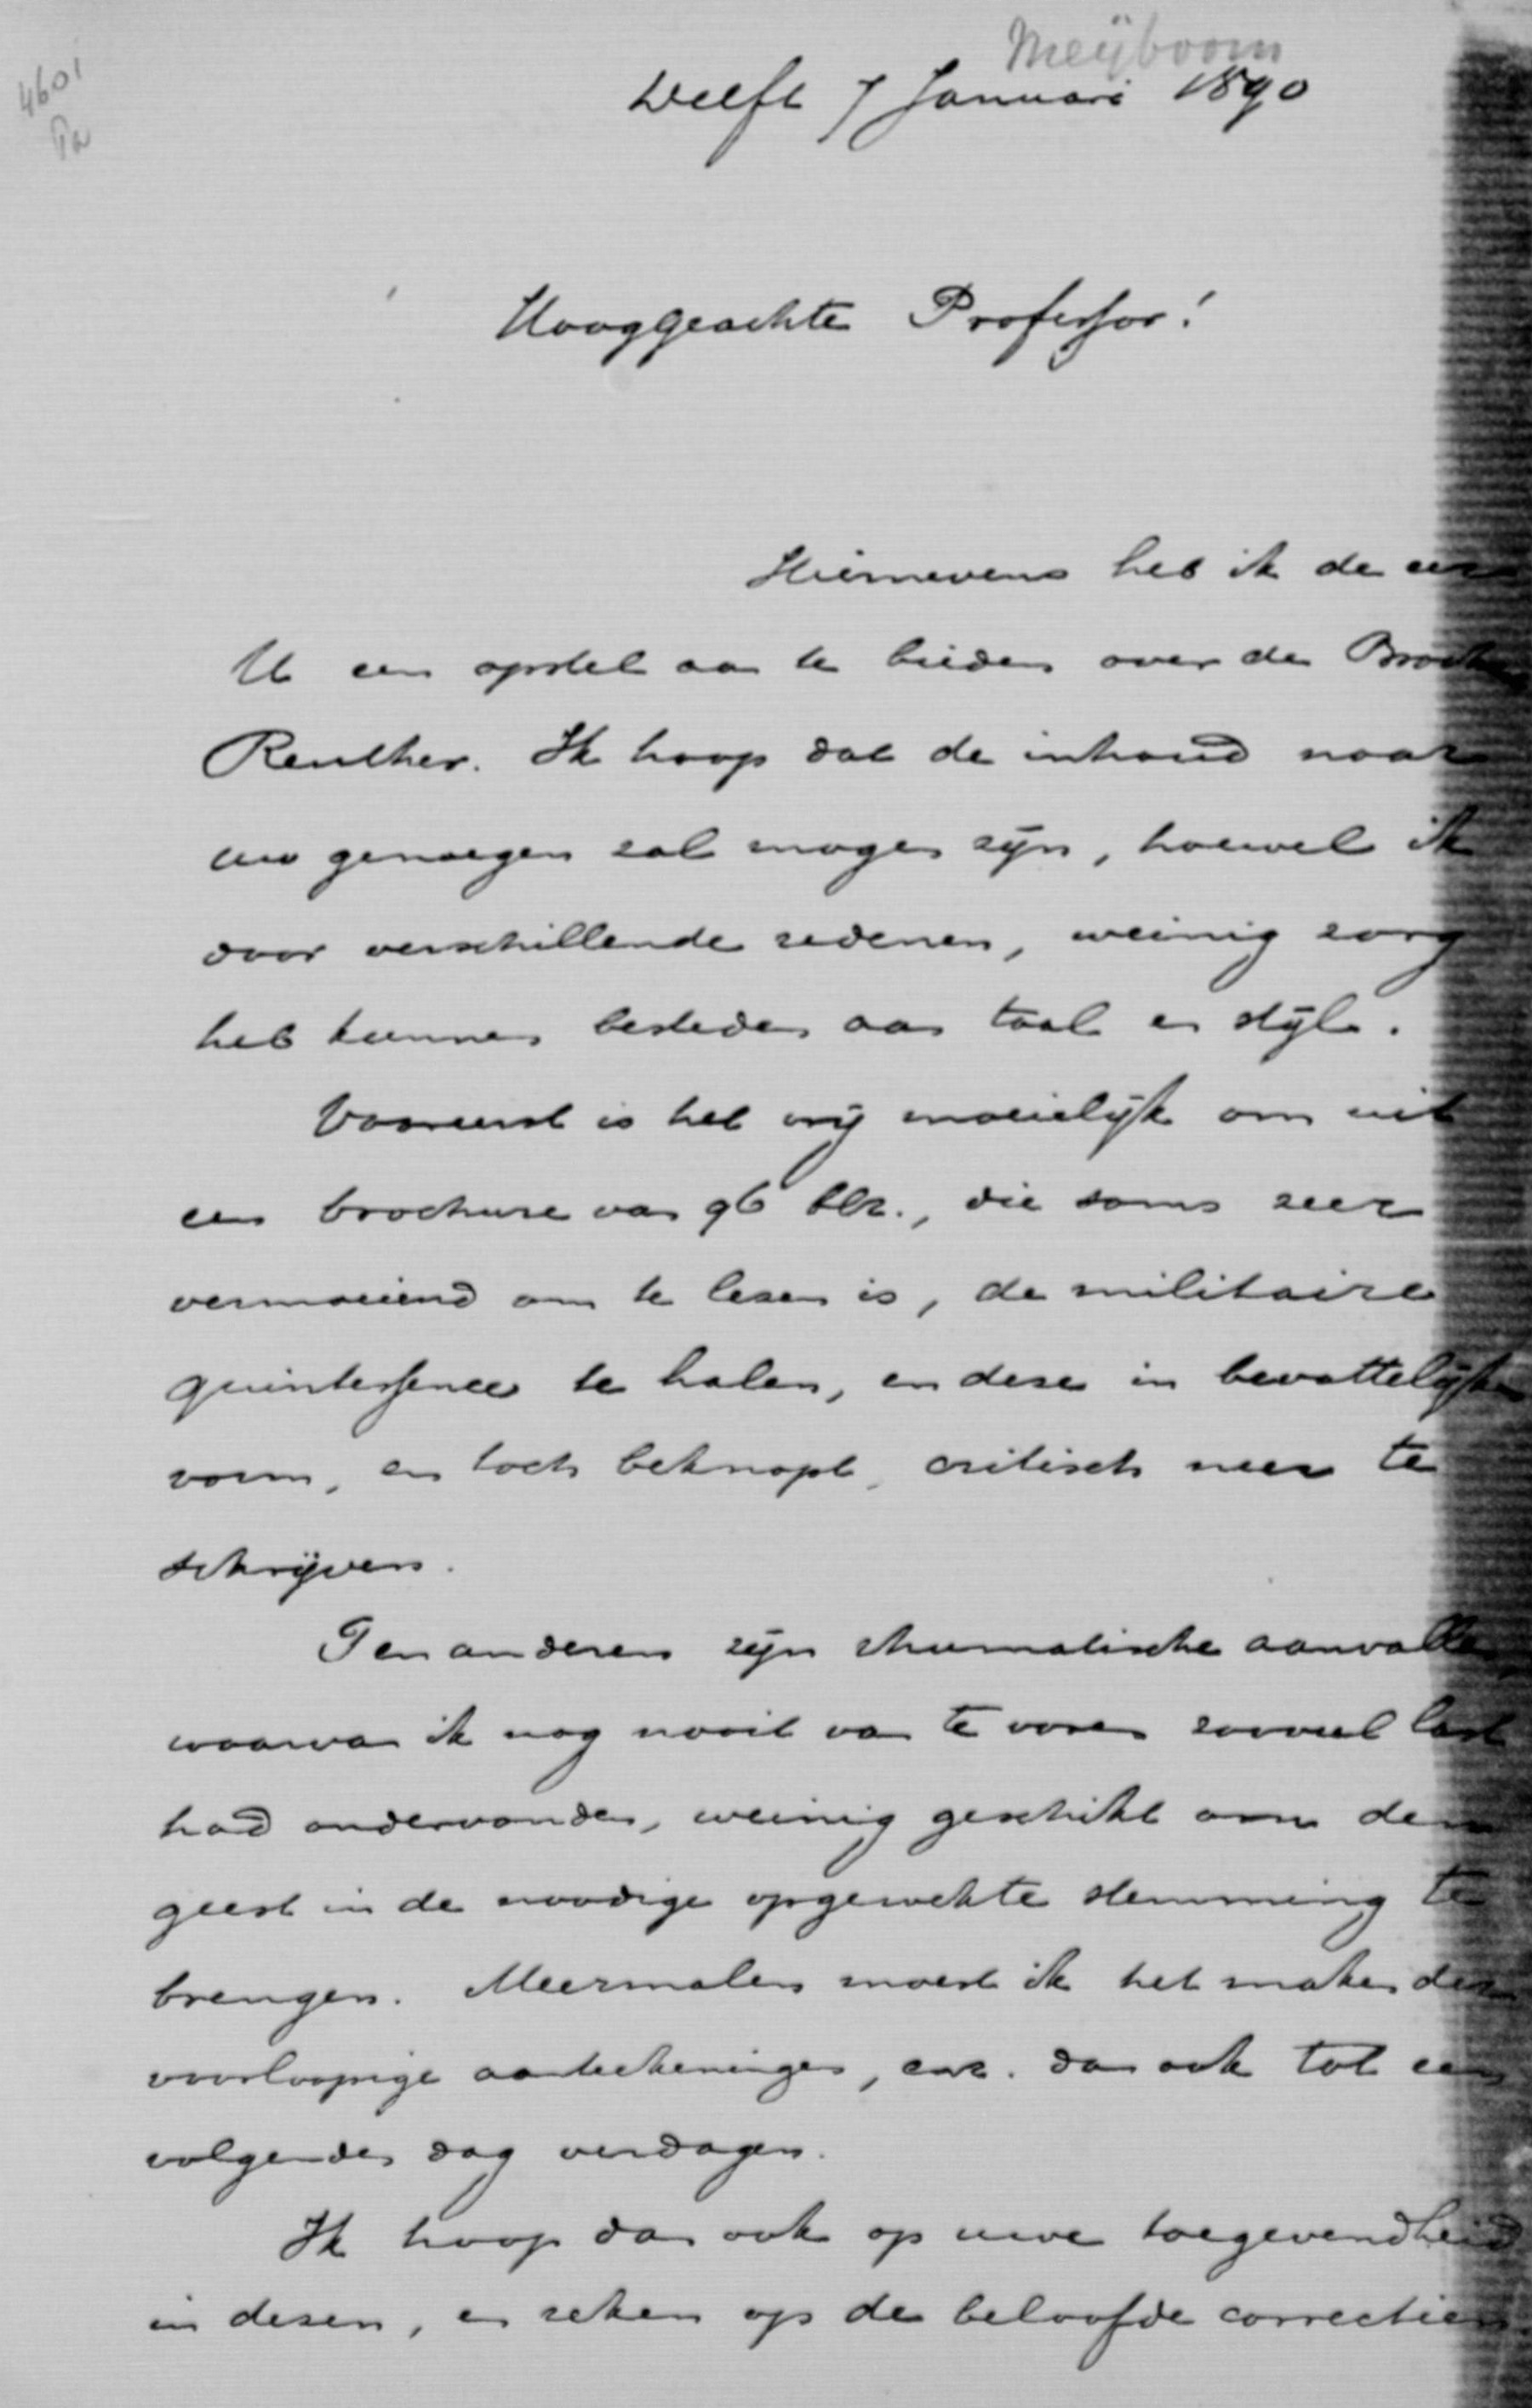 Meijboom
4601
Delft 7 Januari 1890
Hooggeachte Professor!
Hiernevens heb ik de eer
U een opstel aan te bieden over de Brochure
Reuther. Ik hoop dat de inhoud naar
uw genoegen zal mogen zijn, hoewel ik
door verschillende redenen, weinig zorg
heb kunnen besteden aan taal en stijl.
Vooreerst is het vrij moeielijk om uit
een brochure van 96 blz., die soms zeer
vermoeiend om te lezen is, de militaire
quintessence te halen, en deze in bevattelijken
vorm, en toch beknopt, critisch neer te
schrijven.
Ten anderen zijn rhumatische aanvallen,
waarvan ik nog nooit van te voren zooveel last
had ondervonden, weinig geschikt om den
geest in de noodige opgewekte stemming te
brengen. Meermalen moest ik het maken der
voorloopige aanteekeningen, enz. dan ook tot een
volgenden dag verdagen.
Ik hoop dan ook op uwe toegevendheid
in dezen, en reken op de beloofde correctien